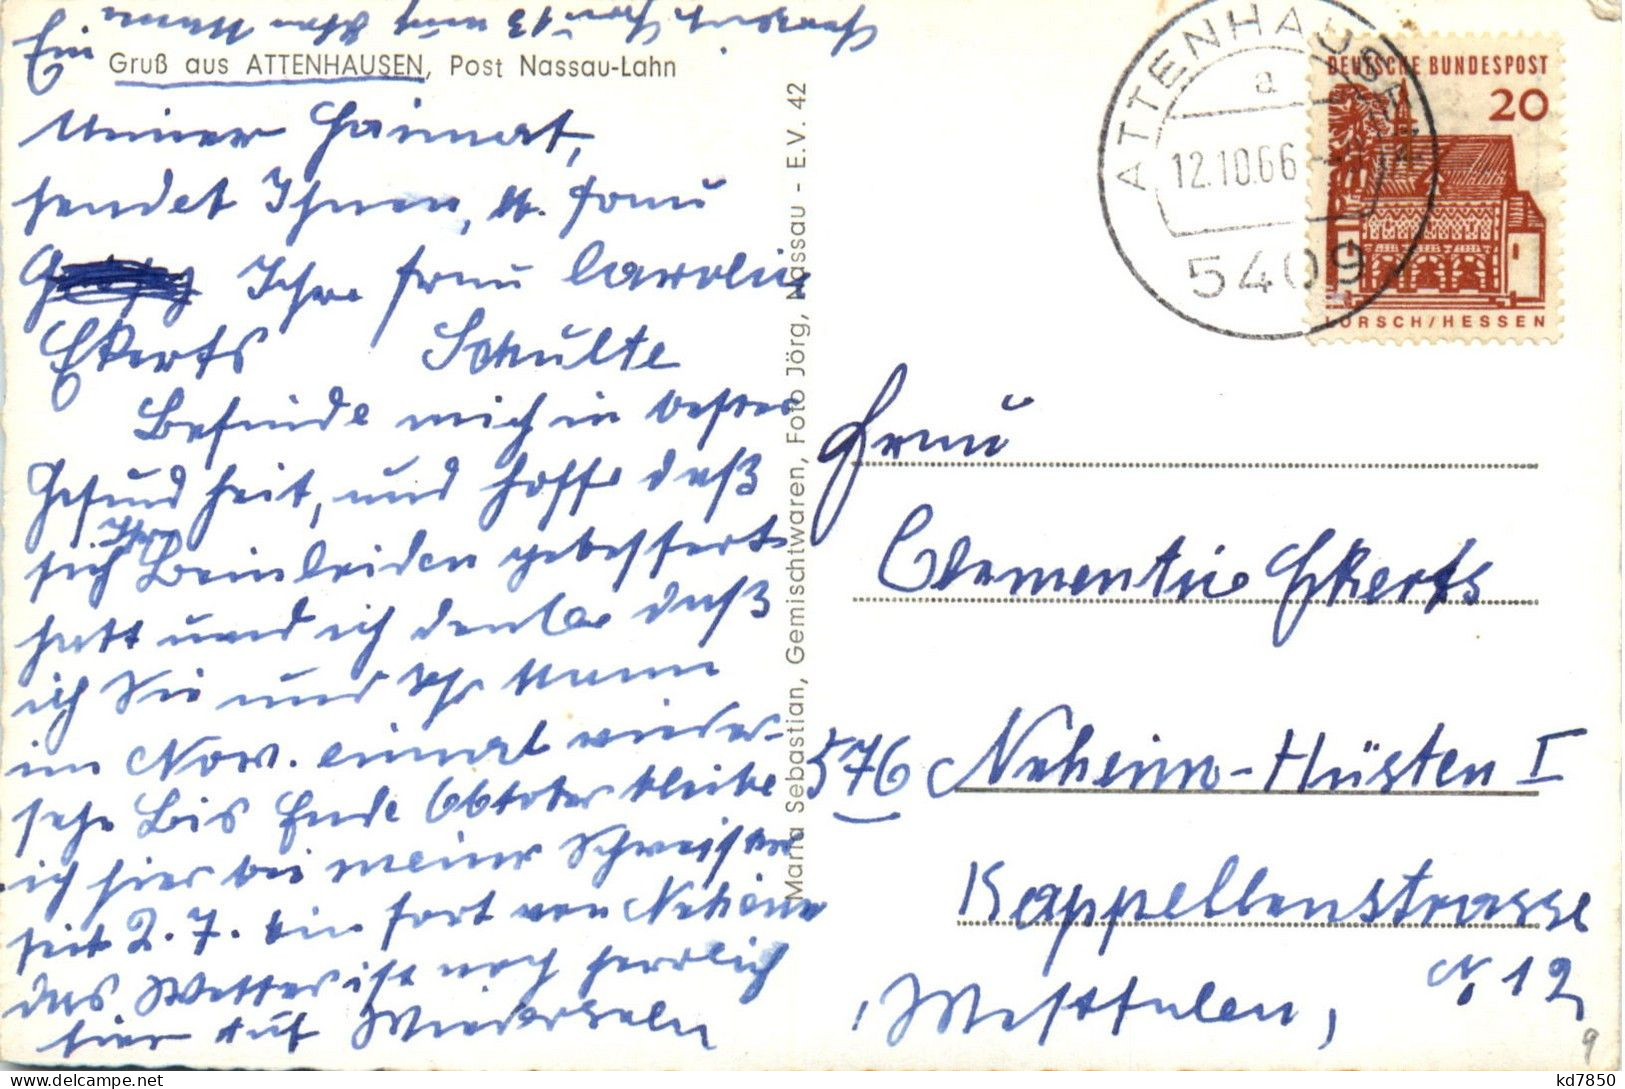 Ein
Gruß aus ATTENHAUSEN, Post Nassau-Lahn
Meiner Heimat,
sendet Ihnen, u. Frau
Ihre Frau Carolin
Ekerts Schulte
Befinde mich in bester
Gesundheit, und hoffe daß
sich Ihr Beinleiden gebessert
hatt und ich denke daß
ich Sie und Ihr Mann
im Nov. einmal wieder-
sehe Bis Ende Oktober bleibe
ich hier bei meiner Schwester
seit 2. 7. bin fort von Neheim
das Wetter ist noch herrlich
hier auf Wiedersehn
Maria Sebastian, Gemischtwaren, Foto Jörg, Nassau - E.V. 42
ATTENHAUSEN
a
12.10.66
5409
DEUTSCHE BUNDESPOST
20
LORSCH/HESSEN
Frau
Clementine Ekerts
576 Neheim-Hüsten I
Kappellenstrasse
No 12
Westfalen,
9
kd7850